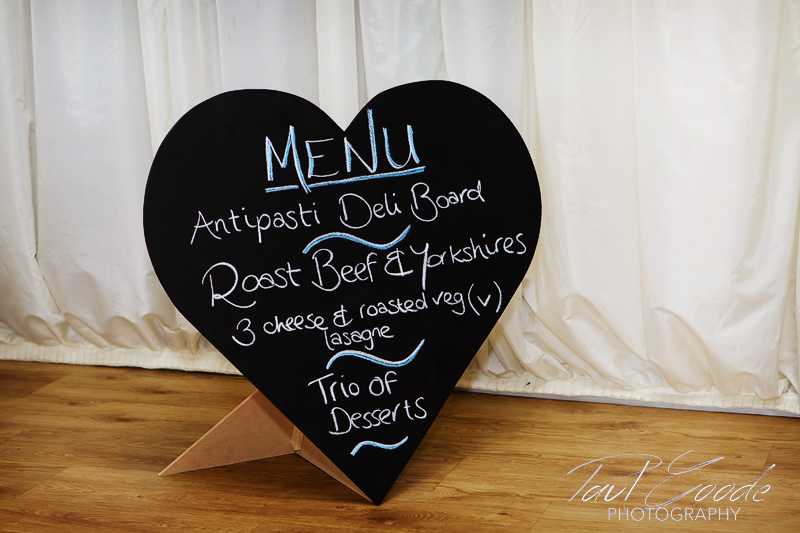 MENU
Antipasti Deli Board
Roast Beef & Yorkshires
3 cheese & roasted veg (v)
lasagne
Trio Of
Desserts
Paul Goode
PHOTOGRAPHY